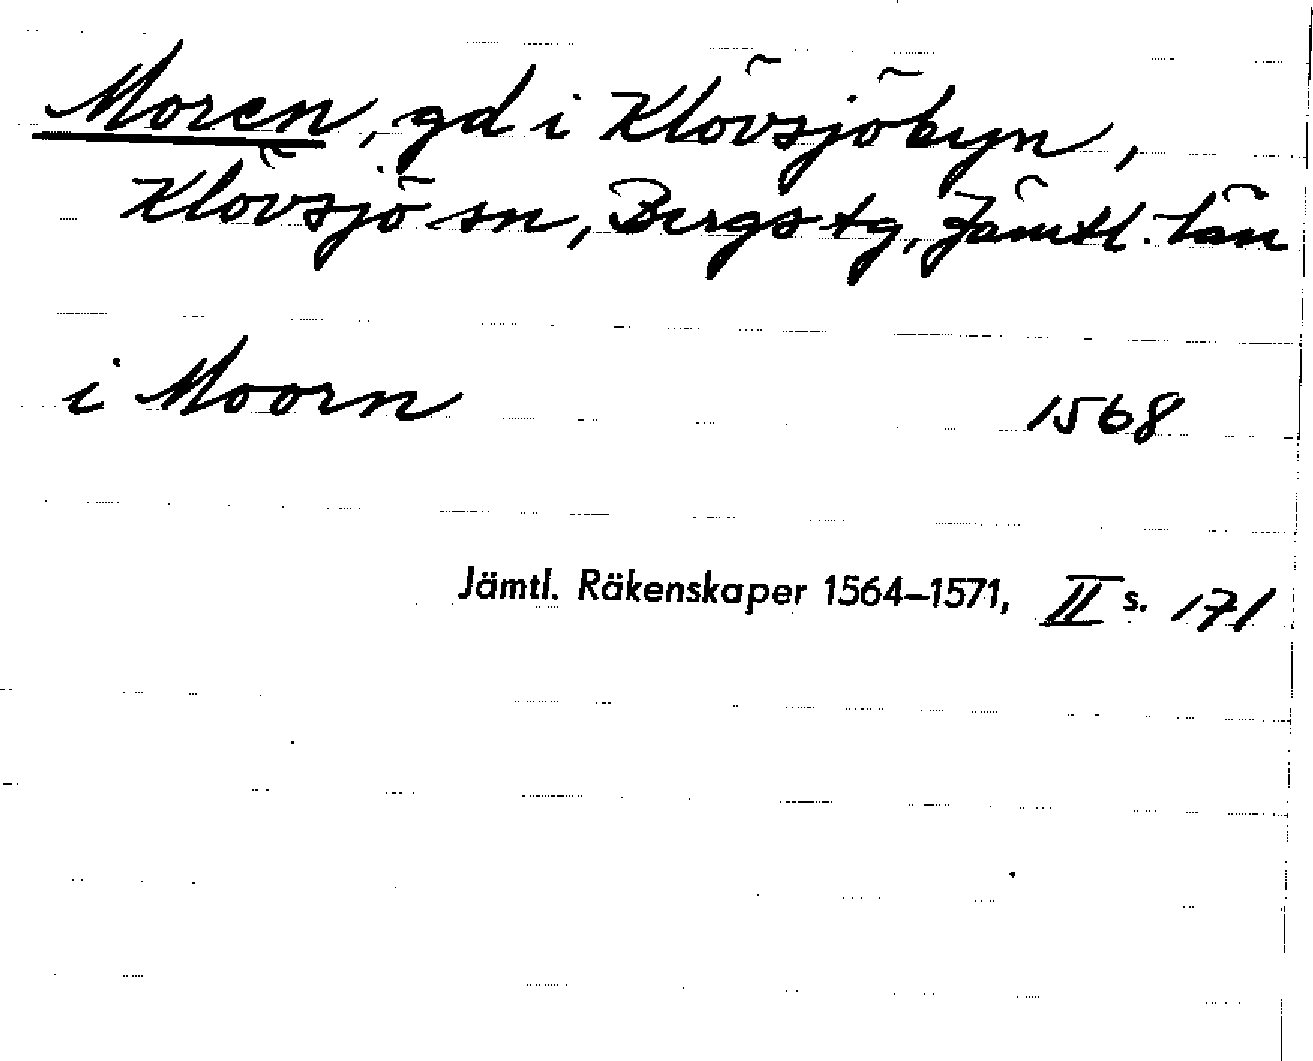 Moren, gd i Klövsjöbyn,
Klövsjö sn, Bergs tg, Jämtl. län
i Moorn 1568
Jämtl. Räkenskaper 1564–1571, II s. 171